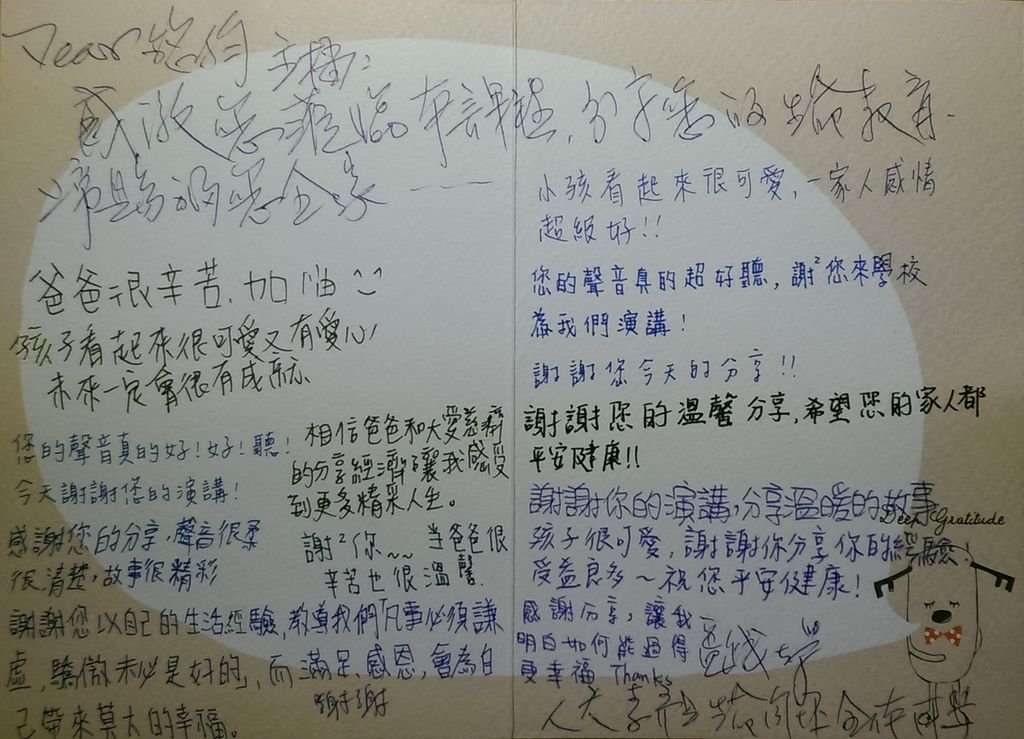 Dear 主播:
感激您蒞臨本課程,分享您的生命教育.
祝福您全家
爸爸很辛苦.加油
孩子看起來很可愛又有愛心
未來一定會很有成就.
您的聲音真的好!好!聽!
今天謝謝您的演講!
感謝您的分享,聲音很柔
很清楚,故事很精彩
相信爸爸和大愛慈濟
的分享經濟讓我感受
到更多精采人生。
謝²你~~
當爸爸很
辛苦也很溫馨.
謝謝您以自己的生活經驗,教導我們「凡事必須謙
虛,驕傲未必是好的」,而滿足、感恩,會為自
己帶來莫大的幸福。
謝謝
小孩看起來很可愛,一家人感情
超級好!!
您的聲音真的超好聽,謝²您來學校
為我們演講!
謝謝您今天的分享!!
謝謝您的溫馨分享,希望您的家人都
平安健康!!
謝謝你的演講,分享溫暖的故事
Deep Gratitude
孩子很可愛,謝謝你分享你的經驗!
受益良多~祝您平安健康!
感謝分享,讓我
明白如何能過得
更幸福 Thanks